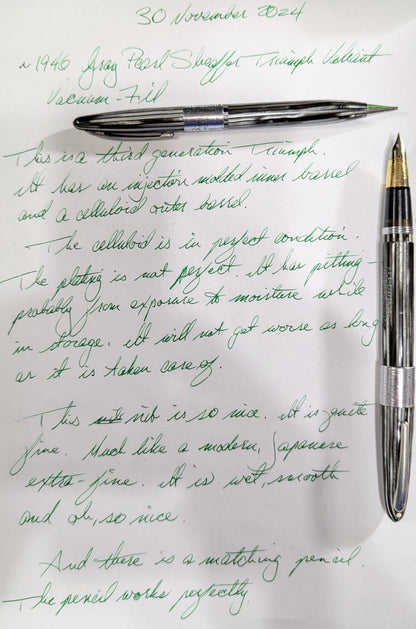 30 November 2024
~1946 Gray Pearl Sheaffer Triumph Valiant
Vacuum-Fill
This is a third generation Triumph.
It has an injection molded inner barrel
and a celluloid outer barrel.
The celluloid is in perfect condition.
The plating is not perfect. It has pitting -
probably from exposure to moisture while
in storage. It will not get worse as long
as it is taken care of.
This nib is so nice. It is quite
fine. Much like a modern, Japanese
extra-fine. It is wet, smooth
and oh, so nice.
And there is a matching pencil.
The pencil works perfectly.